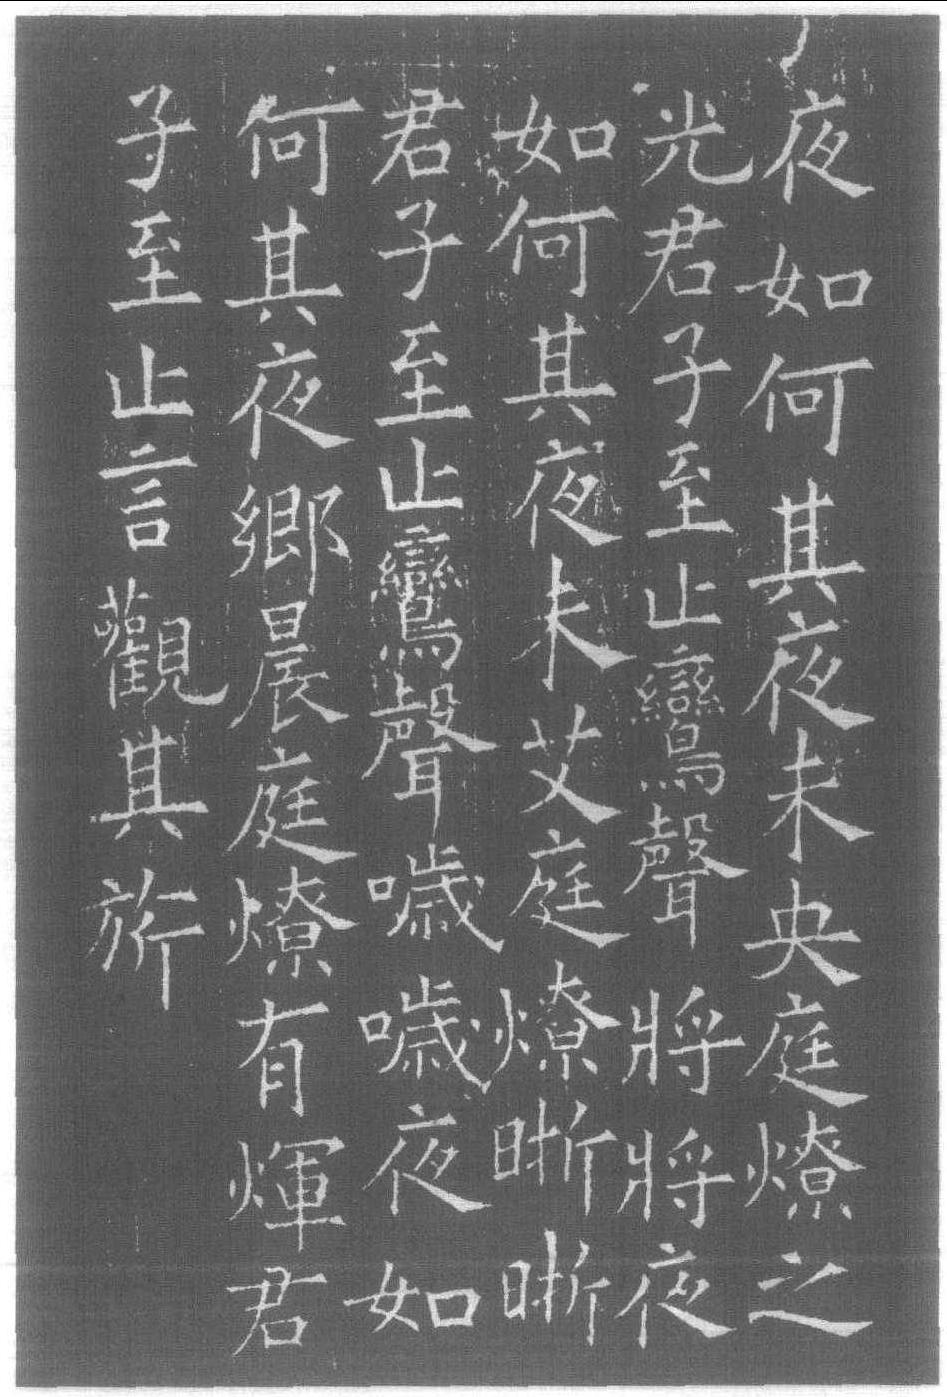 夜如何其夜未央庭燎之
光君子至止鸞聲將將夜
如何其夜未艾庭燎晣晣
君子至止鸞聲噦噦夜如
何其夜鄉晨庭燎有煇君
子至止言觀其旂